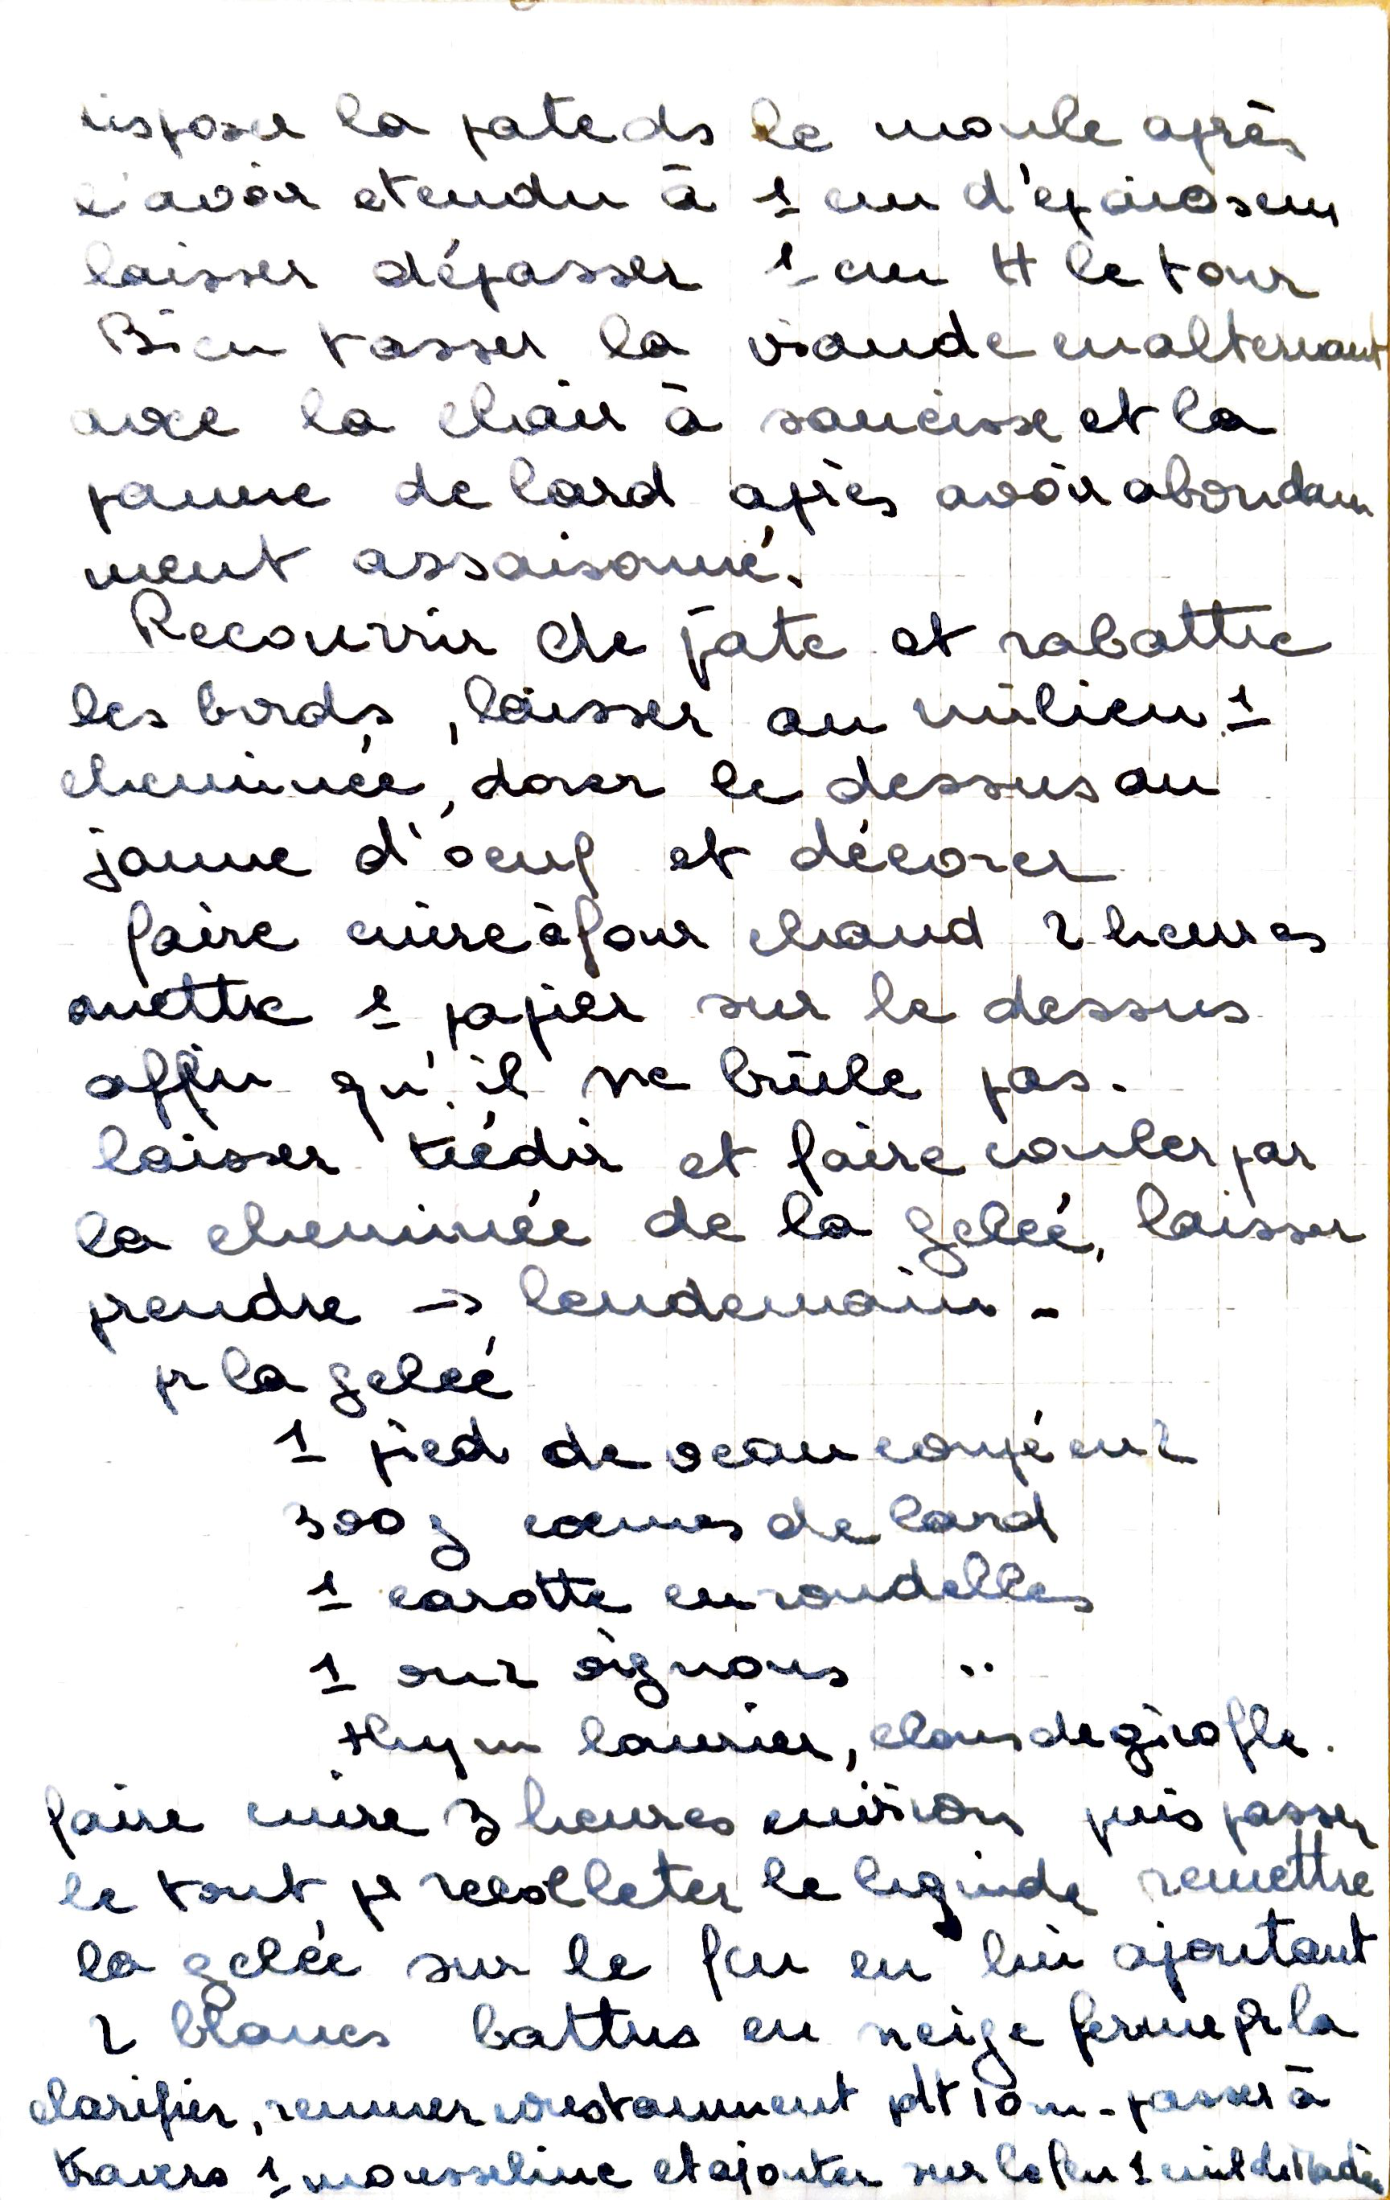 disposer la pate ds le moule après
l'avoir etendu à 1 cm d'épaisseur
laisser dépasser 1 cm tt le tour
Bien tasser la viande en alternant
avec la chair à saucisse et la
panne de lard après avoir abondam
ment assaisonné.
Recouvrir de pate et rabattre
les bords, laisser au milieu 1
cheminée, dorer le dessus au
jaune d'oeuf et décorer
faire cuire à four chaud 2 heures
mettre 1 papier sur le dessus
affin qu'il ne brûle pas.
laisser tiédir et faire couler par
la cheminée de la geleé, laisser
prendre → lendemain -
pr la geleé
1 pied de veau coupé en 2
300 g couennes de lard
1 carotte en rondelles
1 ou 2 oignons "
thym laurier, clous de girofle.
faire cuire 3 heures environ puis passer
le tout pr recolleter le liquide remettre
la gelée sur le feu en lui ajoutant
2 blancs battus en neige ferme pr la
clarifier, remuer constamment pdt 10 m - passer à
travers 1 mousseline et ajouter sur le feu 1 cuil de Madère